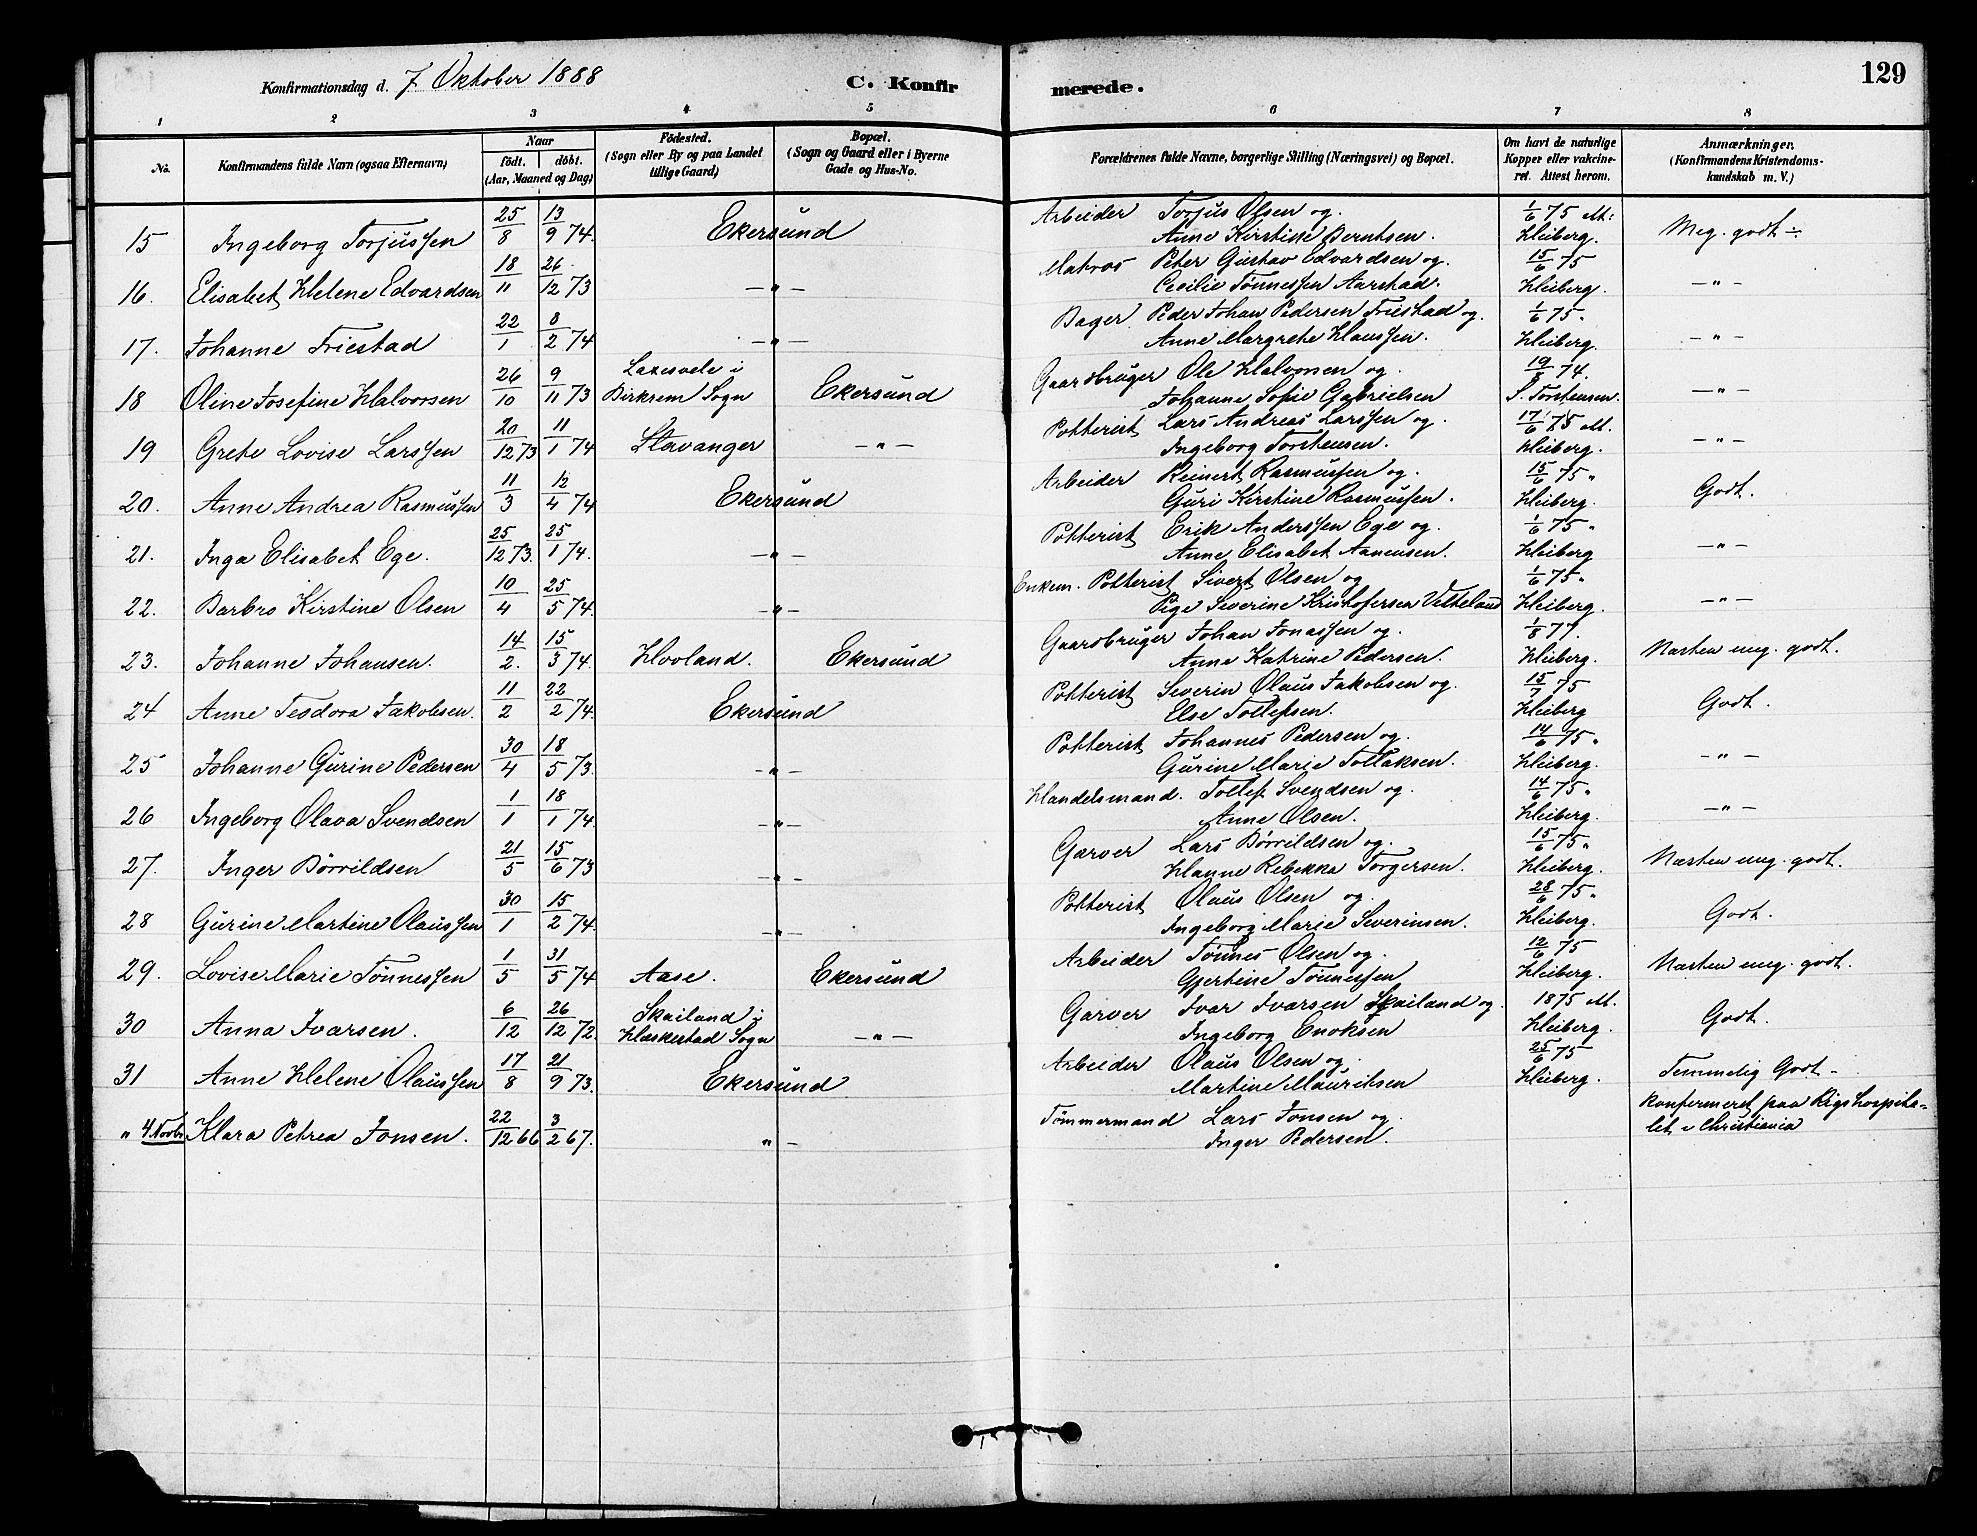 Konfirmationsdag d. 7 Oktober 1888 C. Konfirmerede. 129
1 2 3 4 5 6 7 8
No. Konfirmandens fulde Navn (ogsaa Efternavn) Naar födt. döbt. (Aar, Maaned og Dag) Födested. (Sogn eller By og paa Landet tillige Gaard) Bopæl. (Sogn og Gaard eller i Byerne Gade og Hus-No. Forældrenes fulde Navne, borgerlige Stilling (Næringsvei) og Bopæl. Om havt de naturlige Kopper eller vakcineret. Attest herom. Anmærkninger. (Konfirmandens Kristendomskundskab m. V.)
15 Ingeborg Torjussen 25/8 13/9 74. Ekersund Arbeider Torjus Olsen og 1/6 75 M: Meg. godt ÷
Anne Kirstine Berntsen. Heiberg.
16. Elisabet Helene Edvardsen 18/11 26/12 73 —"— Matros Peter Gustav Edvardsen og 15/6 75 —"—
Cecilie Tønnessen Aarstad. Heiberg.
17. Johanne Friestad 22/1 8/2 74 —"— Bager Peder Johan Pedersen Friestad og 1/6 75 " —"—
Anne Margrethe Klaussen. Heiberg.
18 Oline Josefine Halvorsen 26/10 9/11 73 Laxesvele i Birkrem Sogn Ekersund Gaardbruger Ole Halvorsen og 19/5 74. —"—
Johanne Sofie Gabrielsen S. Torstensen.
19 Grete Lovise Larssen 20/12 73 11/1 74 Stavanger —"— Potterist Lars Andreas Larssen og 17/6 75 M. —"—
Ingeborg Torstensen. Heiberg.
20. Anne Andrea Rasmussen 11/3 12/4 74 Ekersund Arbeider Reinert Rasmussen og 15/6 75 " Godt.
Guri Kirstine Rasmussen. Heiberg.
21. Inga Elisabet Ege. 25/12 73. 25/1 74. —"— Potterist Erik Anderssen Ege og 1/6 75 " —"—
Anne Elisabet Aanensen. Heiberg
22. Barbro Kirstine Olsen 10/4 25/5 74. —"— Enkem. Potterist Sivert Olsen og 1/6 75 " —"—
Pige Severine Kristofersen Vetteland Heiberg.
23. Johanne Johansen. 14/2. 15/3 74. Hovland. Ekersund Gaardbruger Johan Jonassen og 1/8 77. Næsten meg. godt.
Anne Katrine Pedersen. Heiberg.
24 Anne Teodora Jakobsen. 11/2 22/2 74. Ekersund Potterist Severin Olaus Jakobsen og 15/7 75 Godt.
Else Tollefsen. Heiberg
25 Johanne Gurine Pedersen 30/4 18/5 73. —"— Potterist Johannes Pedersen og 14/6 75 " —"—
Gurine Marie Tollaksen. Heiberg.
26 Ingeborg Olava Svendsen 1/1 18/1 74. —"— Handelsmand. Tollef Svendsen og 14/6 75 " —"—
Anne Olsen. Heiberg.
27. Inger Børrildsen 21/5 15/6 73 —"— Garver Lars Børrildsen og 15/6 75 " Næsten meg. godt.
Hanne Rebekka Torgersen. Heiberg.
28 Gurine Martine Olaussen 30/1 15/2 74. —"— Potterist Olaus Olsen og 28/6 75 " Godt.
Ingeborg Marie Severinsen. Heiberg.
29. Lovise Marie Tønnessen 1/5 31/5 74 Aase. Ekersund Arbeider Tønnes Olsen og 12/6 75 Næsten meg. godt.
Gjertine Tønnessen Heiberg.
30 Anna Ivarsen. 6/12 26/12 72. Skailand i Heskestad Sogn —"— Garver Ivar Ivarsen Skailand og 1875 M. Godt.
Ingeborg Enoksen Heiberg.
31 Anne Helene Olaussen 17/8 21/9 73. Ekersund Arbeider Olaus Olsen og 25/6 75 Temmelig Godt -
Martine Mauritsen Heiberg.
" 4 Novbr Klara Petrea Jonsen. 22/12 66 3/2 67. "— Tømmermand Lars Jonsen og Konfirmeret paa Rigshospita=
Inger Pedersen. let i Christiania